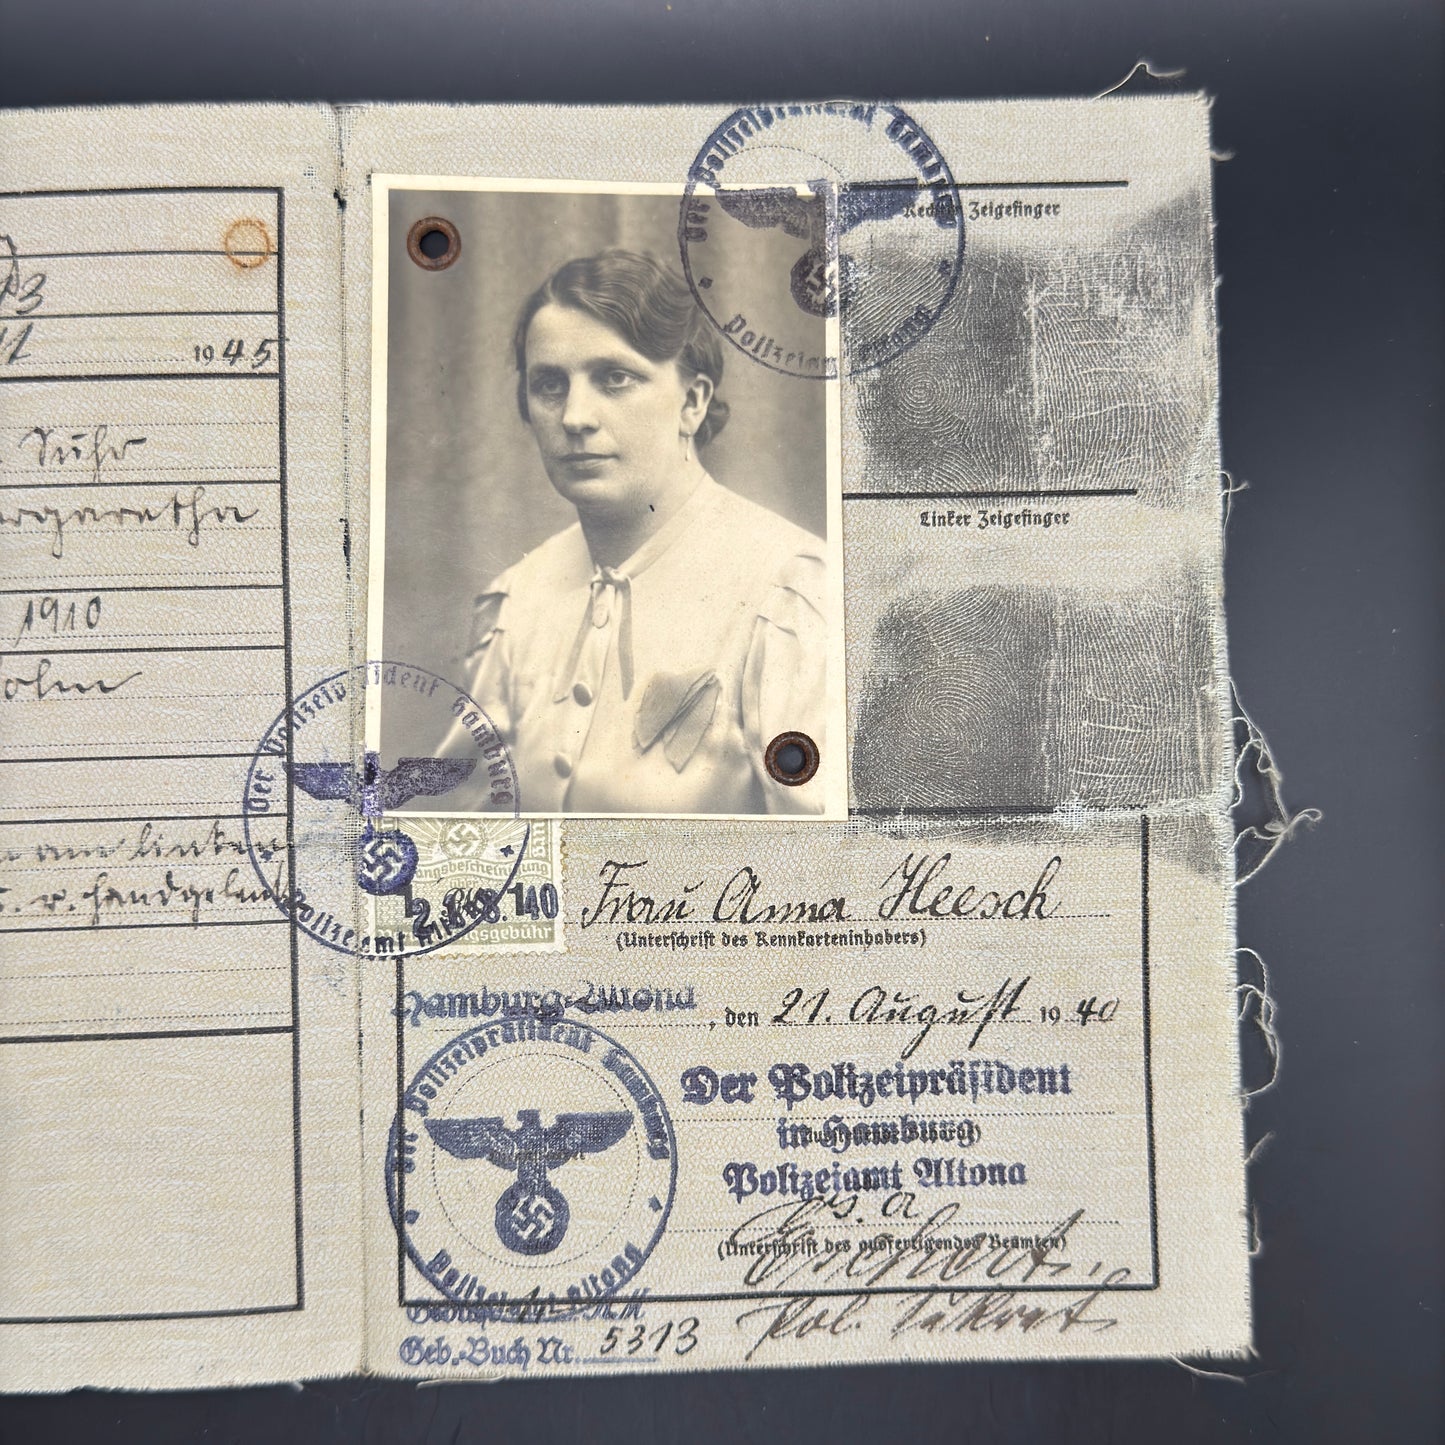 3
11 1945
Suhr
argaretha
1910
olm
am linken
r. Handgelenk
Der Polizeipräsident Hamburg
Polizeiamt Altona
Rechter Zeigefinger
Linker Zeigefinger
Der Polizeipräsident Hamburg
Polizeiamt Altona
ungsbescheinigung
2. 8. 40
Verwaltungsgebühr
Frau Anna Heesch
(Unterschrift des Kennkarteninhabers)
Hamburg-Altona, den 21. August 1940
Der Polizeipräsident Hamburg
Polizeiamt Altona
Der Polizeipräsident
in Hamburg
Polizeiamt Altona
(Unterschrift des ausfertigenden Beamten)
Pol. Sekret.
Geb.-Buch Nr. 5313